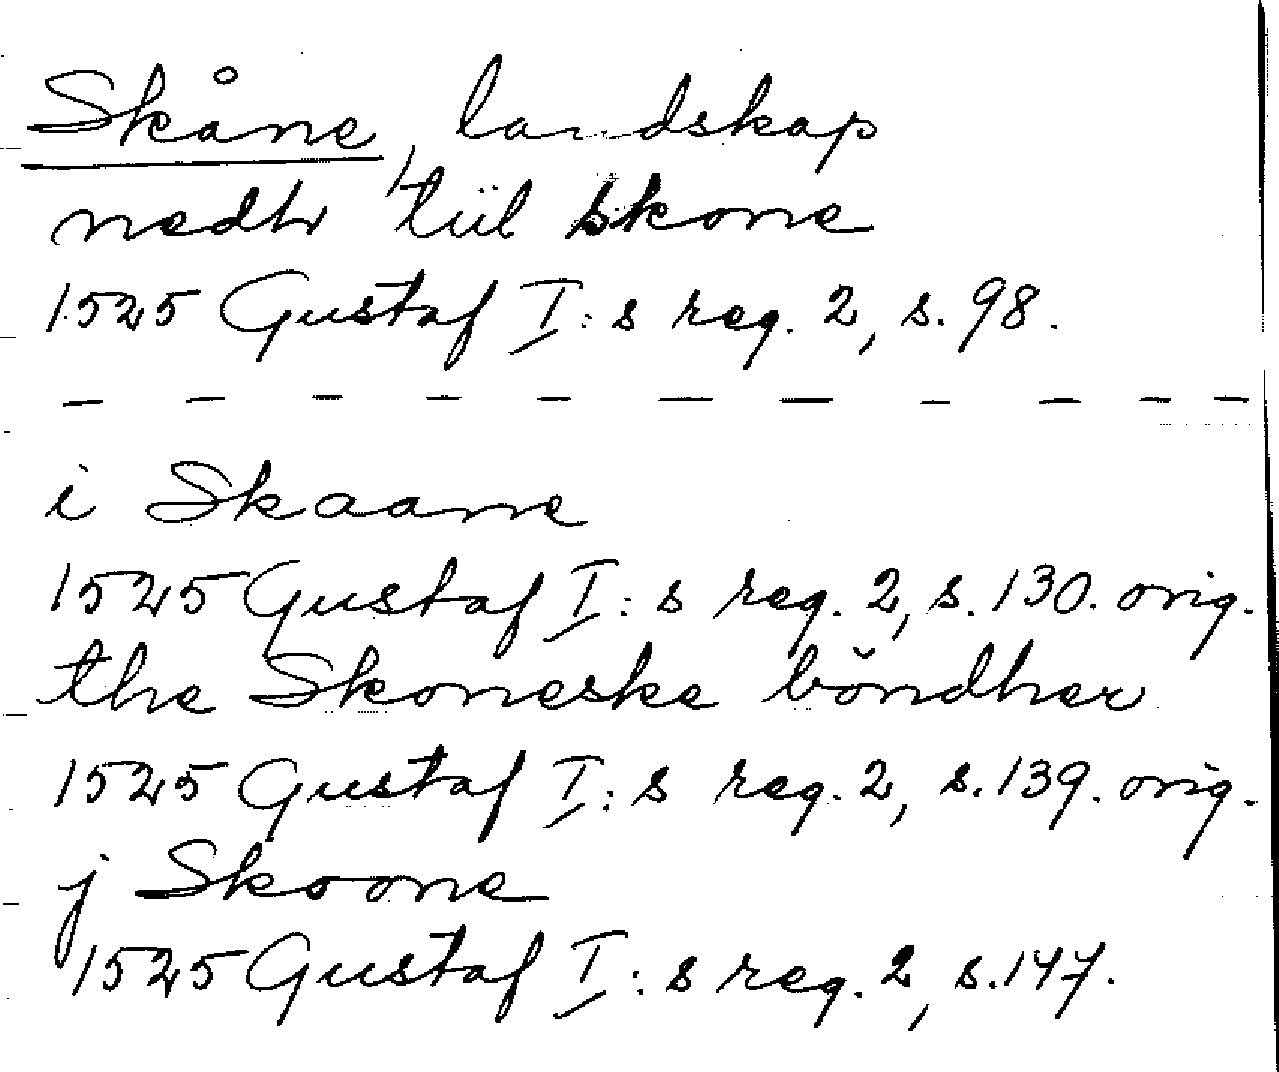 Skåne, landskap
nedh tiil skone
1525 Gustaf I:s reg. 2, s. 98.
— — — — — — — — — — —
i Skaane
1525 Gustaf I:s reg. 2, s. 130. orig.
the Skoneske bōndher
1525 Gustaf I:s reg. 2, s. 139. orig.
j Skoone
1525 Gustaf I:s reg. 2, s. 147.